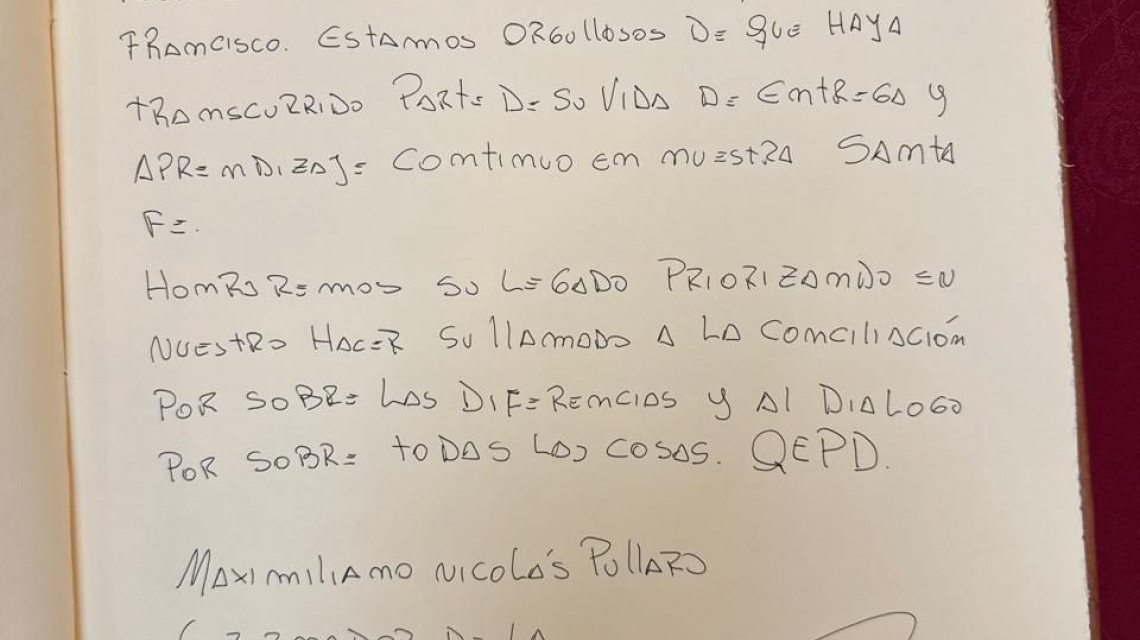 FRANCISCO. ESTAMOS ORGULLOSOS DE QUE HAYA
TRANSCURRIDO PARTE DE SU VIDA DE ENTREGA Y
APRENDIZAJE CONTINUO EN NUESTRA SANTA
FE.
HONRAREMOS SU LEGADO PRIORIZANDO EN
NUESTRO HACER SU LLAMADO A LA CONCILIACIÓN
POR SOBRE LAS DIFERENCIAS Y AL DIALOGO
POR SOBRE TODAS LAS COSAS. QEPD.
MAXIMILIANO NICOLÁS PULLARO
DE LA